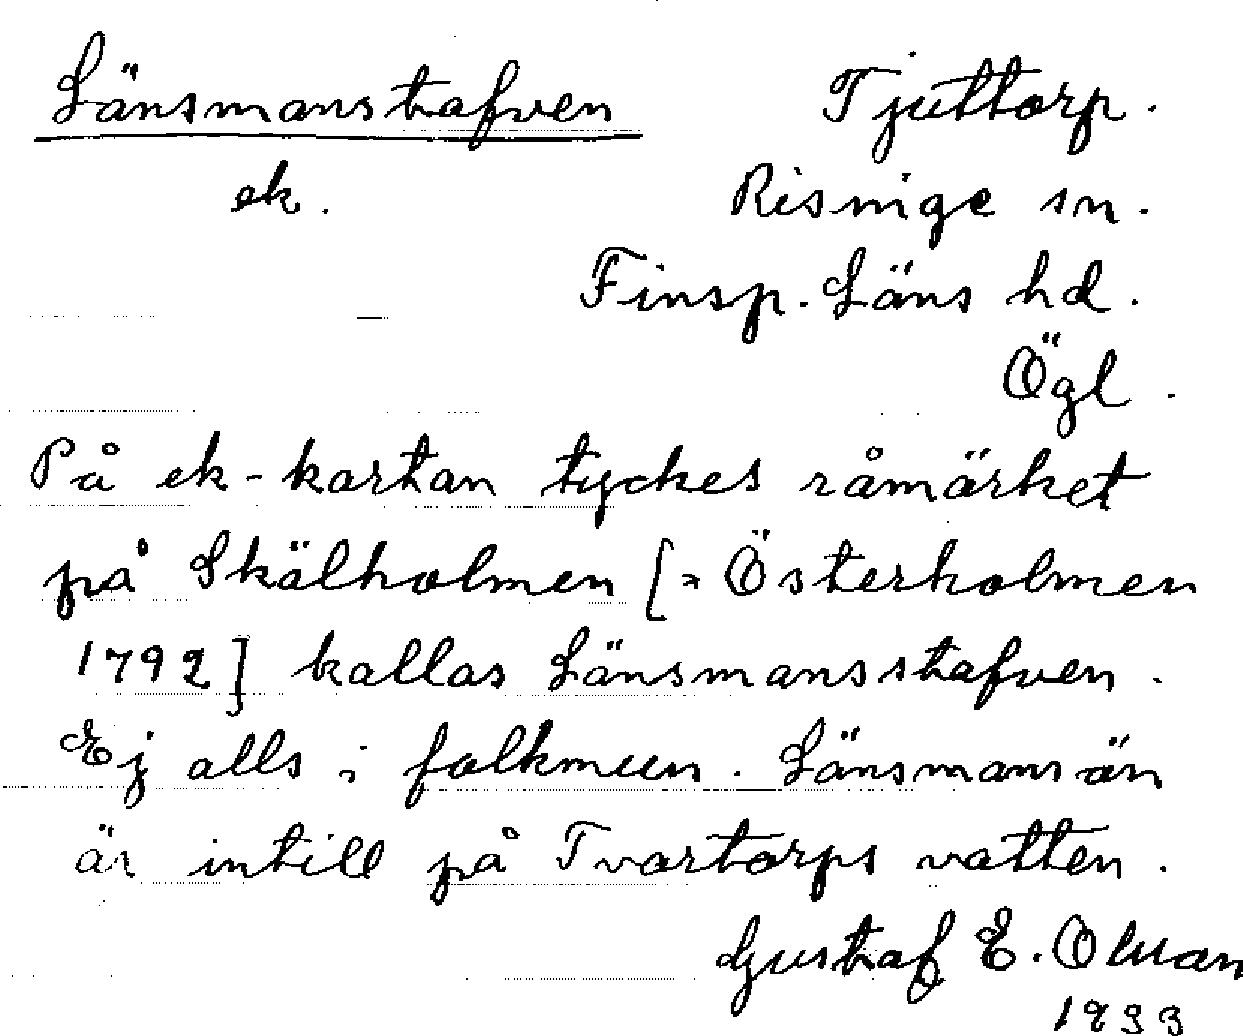 Länsmanstafven
Tjuttorp.
ek.
Risinge sn.
Finsp. Läns hd.
Ögl.
På ek-kartan tyckes råmärket
på Skälholmen [= Österholmen
1792] kallas Länsmansstafven.
Ej alls i folkmun. Länsmansön
är intill på Tvartorps vatten.
Gustaf E. Olsson
1933